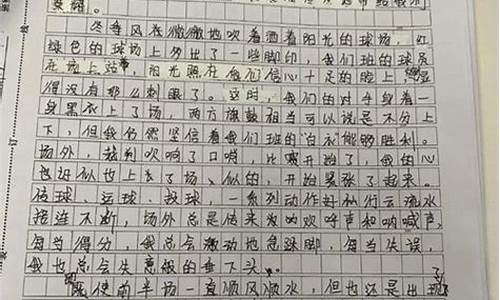 冬季风在微微地吹着洒着阳光的球场，红
绿色的球场上多出了一些脚印，我们班的球员
在场上站，阳光照在他们信心十足的脸上
得没有那么刺眼了。这时，我们的对手身着一
身黑衣上了场，两方旗鼓相当可以说是不分上
下，但我仍然坚信着我们班的“白衣能够胜利。
场外，裁判吹响了口哨，比赛开始了，我的心
也近似也上了场、似的，开始紧张了起来。
传球、运球、投球，一系列动作行云流水
接连不断，场外总是传来为欢呼声和呐喊声，
每当得分，我总会激动地急跺脚，每当失误，
我也总会失意般的垂下头。
既使前半场一直顺风顺水，但也还是出现